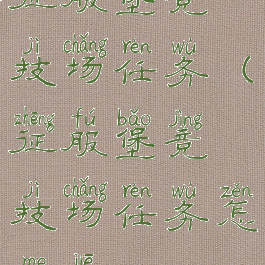 征服堡竟
jì chǎng rèn wù
技场任务（
zhēng fú bǎo jìng
征服堡竟
jì chǎng rèn wù zěn
技场任务怎
me jiē